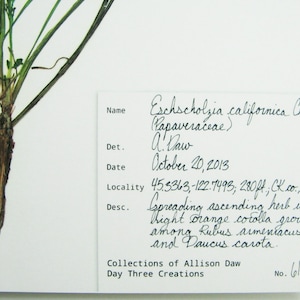 Name Eschscholzia californica C
(Papaveraceae)
Det. A. Daw
Date October 20, 2013
Locality 45.5363, -122.7493, 280ft, CK co.,
Desc. Spreading ascending herb w
bright orange corolla grow
among Rubus armeniacus
and Daucus carota.
Collections of Allison Daw
Day Three Creations
No.